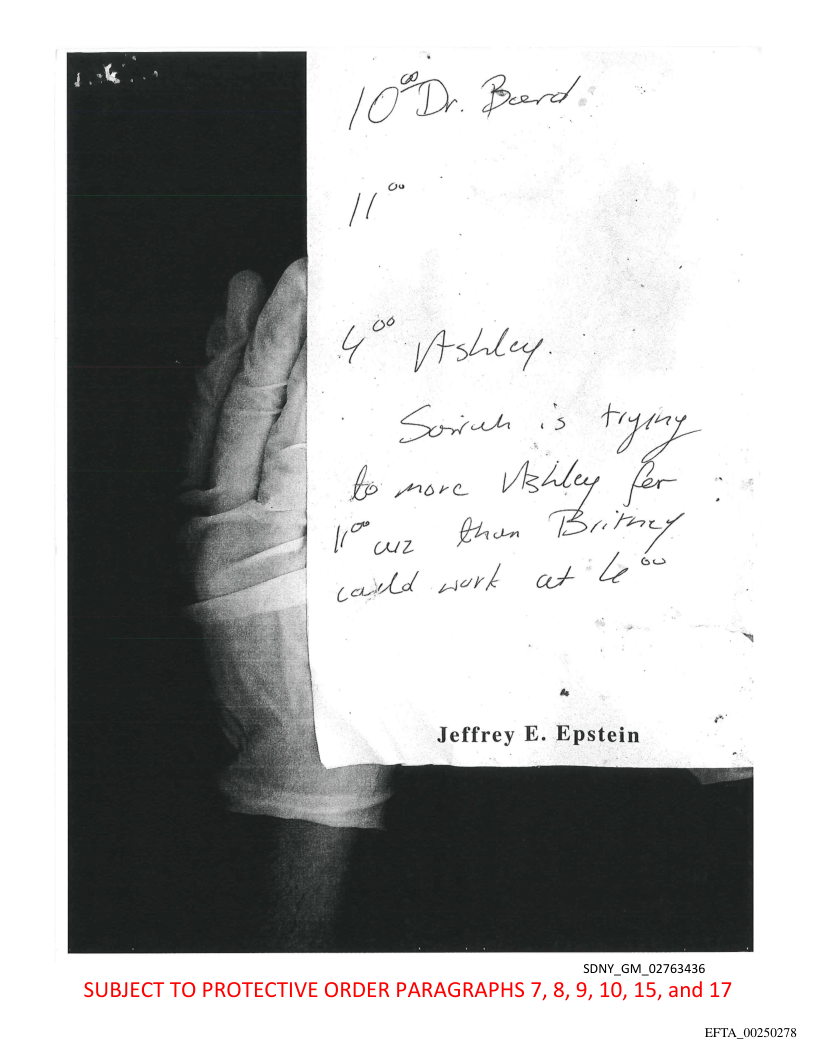 10⁰⁰ Dr. Bard
11⁰⁰
4⁰⁰ Ashley.
Sarah is trying
to move Ashley for
11⁰⁰ cuz than Britney
could work at 4⁰⁰
Jeffrey E. Epstein
SDNY_GM_02763436
SUBJECT TO PROTECTIVE ORDER PARAGRAPHS 7, 8, 9, 10, 15, and 17
EFTA_00250278